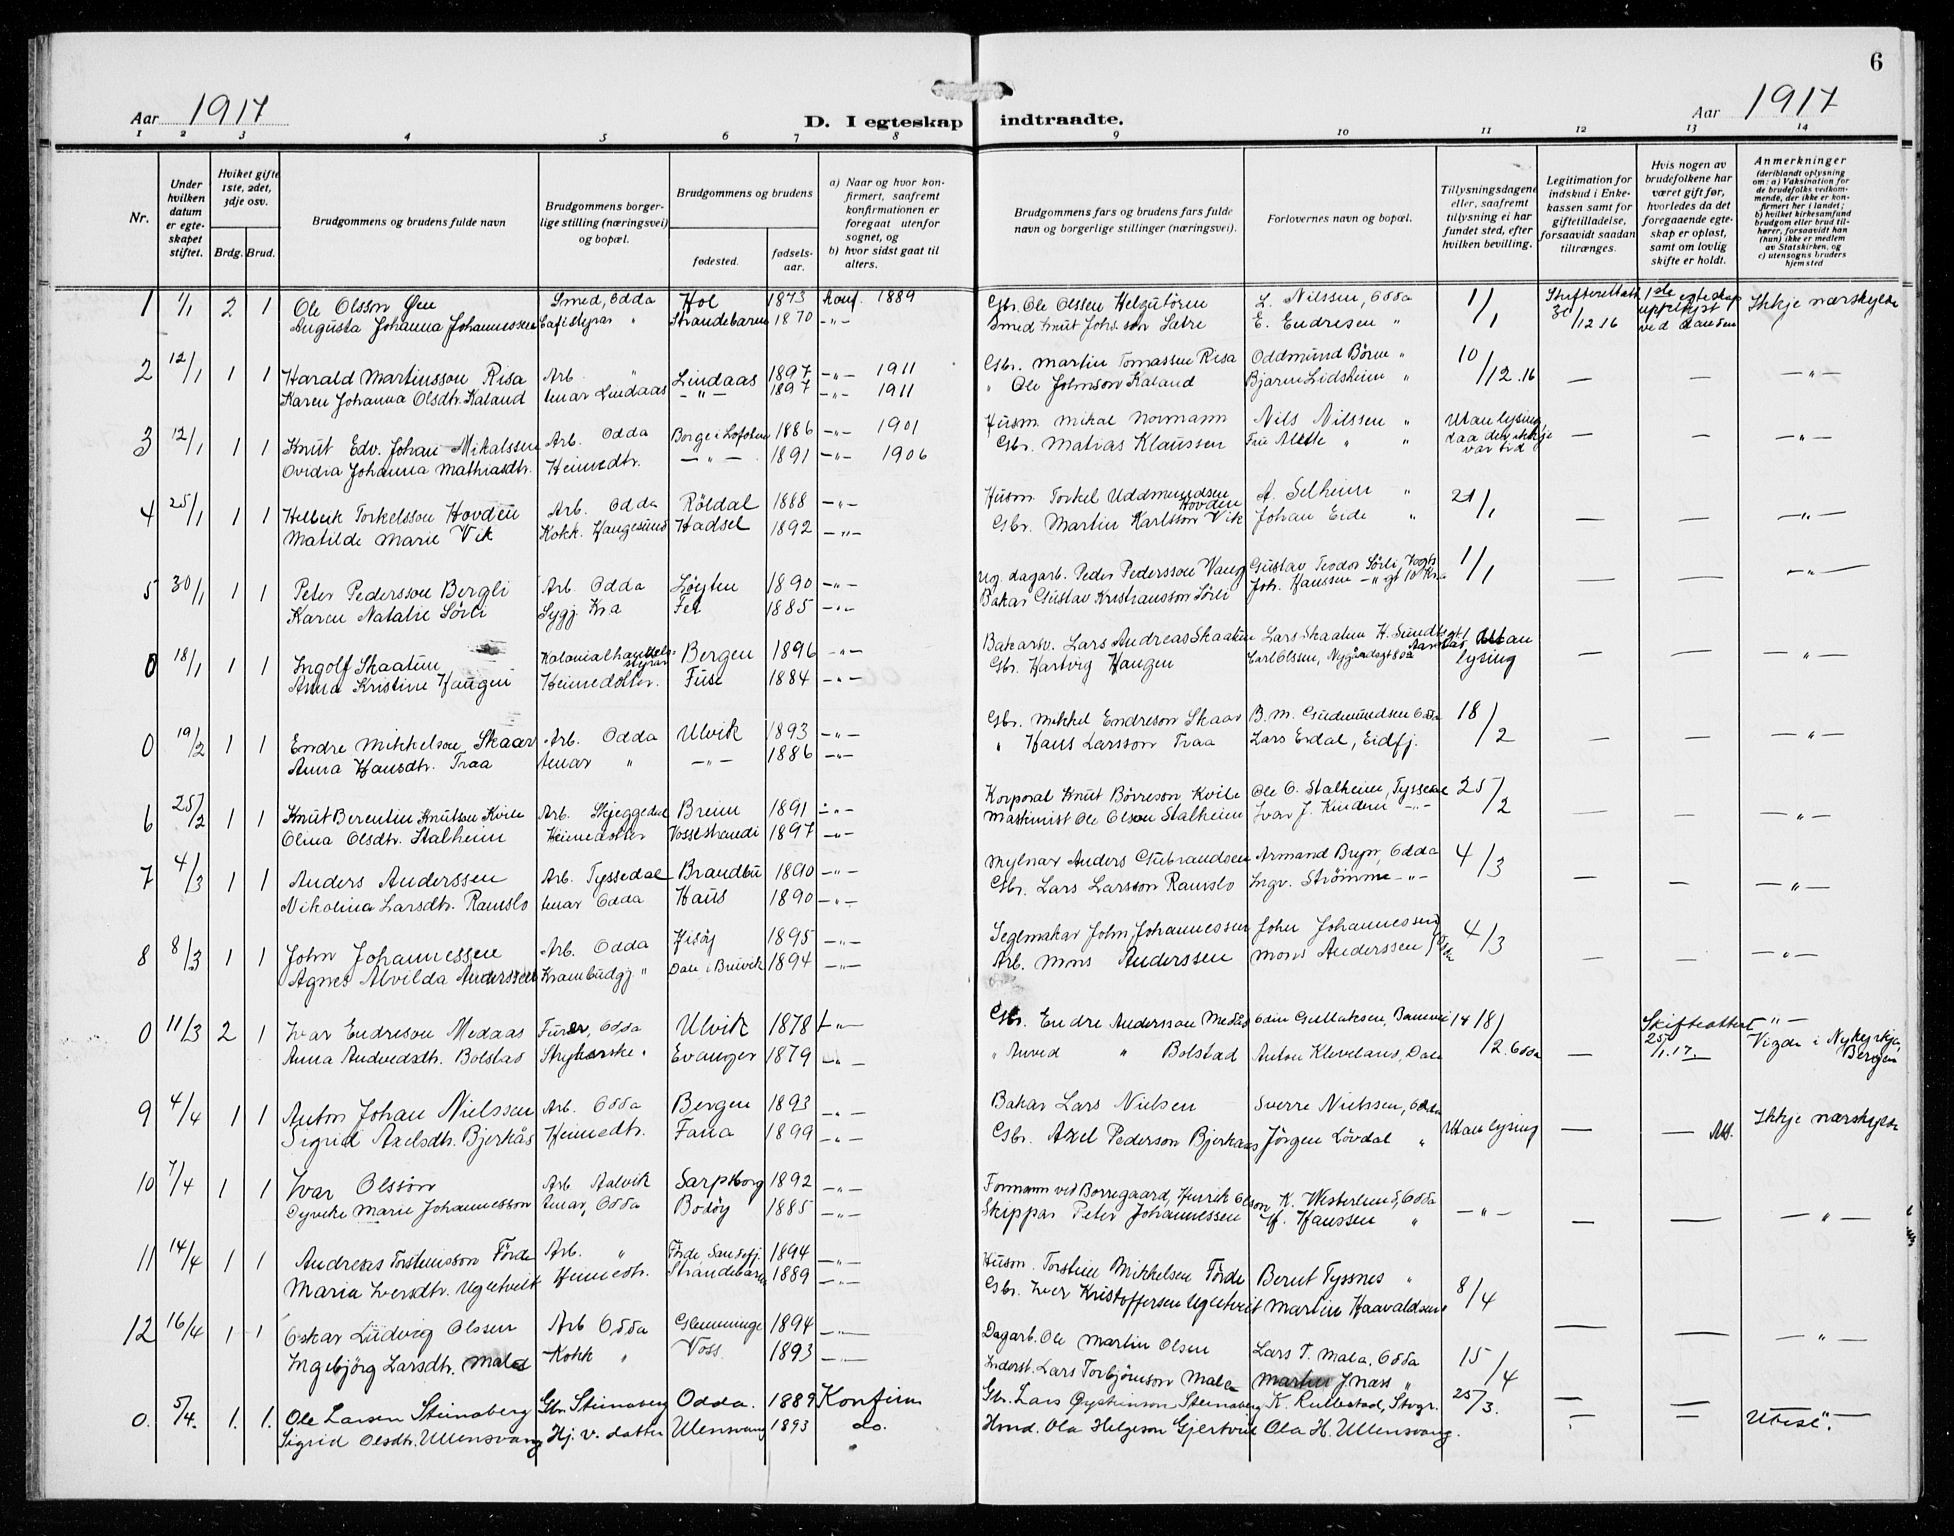 6
Aar 1917
D. I egteskap indtraadte.
Aar 1917
1 2 3 4 5 6 7 8 9 10 11 12 13 14
Nr.
Under hvilken datum er egteskapet stiftet.
Hviket gifte 1ste, 2det, 3dje osv.
Brdg. Brud.
Brudgommens og brudens fulde navn
Brudgommens borgerlige stilling (næringsvei) og bopæl.
Brudgommens og brudens
fødested.
fødselsaar.
a) Naar og hvor konfirmert, saafremt konfirmationen er foregaat utenfor sognet, og
b) hvor sidst gaat til alters.
Brudgommens fars og brudens fars fulde navn og borgerlige stillinger (næringsvei).
Forlovernes navn og bopæl.
Tillysningsdagene eller, saafremt tillysning ei har fundet sted, efter hvilken bevilling.
Legitimation for indskud i Enkekassen samt for giftetilladelse, forsaavidt saadan tiltrænges.
Hvis nogen av brudefolkene har været gift før, hvorledes da det foregaaende egteskap er opløst, samt om lovlig skifte er holdt.
Anmerkninger (deriblandt oplysning om: a) Vaksination for de brudefolks vedkommende, der ikke er konfirmert her i landet; b) hvilket kirkesamfund brudgom eller brud tilhører, forsaavidt han (hun) ikke er medlem av Statskirken, og c) utensogns bruders hjemsted
1 1/1 2 1 Ole Olsson Øen Smed, Odda Hol 1873 Konf. 1889 Gbr. Ole Olssen Helgutøren L. Nilssen, Odda 1/1 Skifterettatt 1ste egteskap Ikkje nærskylde
Augusta Johanna Johannessen Cafistyrar " Strandebarm 1870 -"- Smed Knut Johs.son Sætre E. Endresen " 30/12 16 uppløyst ved dauden
2 12/1 1 1 Harald Martinsson Risa Arb. " Lindaas 1897 -"- 1911 Gbr. Martin Tomassen Risa Oddmund Börve " 10/12.16 — — -"-
Karen Johanna Olsdtr. Kaland tenar Lindaas -"- 1897 -"- 1911 " Ole Johnson Kaland Bjarne Lidsheim "
3 12/1 1 1 Knut Edv. Johan Mikalssen Arb. Odda Borge i Lofoten 1886 -"- 1901 Husm. Mikal Normann Nils Nilssen " Utan lysing, — — -"-
Ovidia Johanna Mathiasdtr. Heimedtr. -"- 1891 -"- 1906 Gbr. Matias Klaussen Fru Mette " " daa der ikkje var tid
4 25/1 1 1 Helleik Torkelsson Hovden Arb. Odda Röldal 1888 -"- Husm. Torkel Uddmundsen Hovden A. Selheim " 21/1 — — -"-
Matilde Marie Vik Kokk. Haugesund Hadsel 1892 -"- Gbr. Martin Karlsson Vik Johan Eide "
5 30/1 1 1 Peter Pedersson Bergli Arb. Odda Löyten 1890 -"- Ug. dagarb. Peder Pedersson Vang Gustav Teodor Sörli, Vogts 1/1 — — -"-
Karen Natalie Sörli Sygj. Kra Fet 1885 -"- Bakar Gustav Kristiansson Sörli Joh. Hanssen -"- gt 10 Kra
0 18/1 1 1 Ingolf Skaatun Kolonialhandels- styrar Bergen 1896 -"- Bakarsv. Lars Andreas Skaatun Lars Skaatun H. Sundtsgt. Utan — — -"-
Anna Kristine Haugen Heimedotter. Fuse 1884 -"- Gbr. Hartvig Haugen Carl Olssen, Nygårdsgt 80a lysing
0 19/2 1 1 Endre Mikkelson Skaar Arb. Odda Ulvik 1893 -"- Gbr. Mikkel Endreson Skaar B. M. Gudmundsen Odda 18/2 — — -"-
Anna Hansdtr. Traa tenar " -"- 1886 -"- " Hans Larsson Traa Lars Erdal, Eidfj.
6 25/2 1 1 Knut Berentin Knutson Kvile Arb. Skjeggedal Breim 1891 -"- Korporal Knut Börreson Kvile Ole O. Stalheim, Tyssedal 25/2 — — -"-
Olina Olsdtr. Stalheim Heimedotter Vossestrandi 1897 -"- Maskinist Ole Olson Stalheim Ivar J. Kinden -"-
7 4/3 1 1 Anders Anderssen Arb. Tyssedal Brandbu 1890 -"- Mylnar Anders Gubrandsen Armand Bryn, Odda 4/3 — — -"-
Nikolina Larsdtr. Ramslo tenar Odda Haus 1890 -"- Gbr. Lars Larsson Ramslo Ingv. Strömme -"-
8 8/3 1 1 John Johannessen Arb. Odda Hisöy 1895 -"- Seglmakar John Johannessen John Johannessen 4/3 — — -"-
Agnes Alvilda Anderssen Krambudgj " Dale i Bruvik 1894 -"- Arb. Mons Anderssen Mons Anderssen
0 11/3 2 1 Ivar Endreson Medaas Furer, Odda Ulvik 1878 -"- Gbr. Endre Andersson Medaas Odin Gullaksen, 18/2. Odda — Skifteattest 25/1.17. -"-
Anna Andvedsdtr. Bolstad Strykerske " Evanger 1879 -"- " Anved " Bolstad Anton Kleveland, Dale Vigde i Nykyrkja, Bergen
9 4/4 1 1 Anton Johan Nielssen Arb. Odda Bergen 1893 -"- Bakar Lars Nielsen Sverre Nielssen, Odda Utan lysing — — Ikkje nærskylde
Sigrid Axelsdtr. Bjerkås Heimedtr. Fana 1899 -"- Gbr. Axel Pederson Bjerkaas Jörgen Lövdal "
10 7/4 1 1 Ivar Olsson Arb. Aalvik Sarpsborg 1892 -"- Formann ved Borregaard, Henrik Olson K. Westerlund, Odda -"- — — -"-
Dyveke Marie Johannesson tenar, Odda Bodöy 1885 -"- Skippar Peter Johannessen H. Hanssen "
11 14/4 1 1 Andreas Torsteinsson Förde Arb. " Förde, Sunnfj. 1894 -"- Husm. Torstein Mikkelsen Förde Bernt Tyssnes " 8/4
Maria Iversdtr. Ugletveit Heimedtr. Strandebarm 1889 -"- Gbr. Iver Kristoffersen Ugletveit Martin Haavaldsen "
12 16/4 1 1 Oskar Ludvig Olssen Arb Odda Glemminge 1894 -"- Dagarb. Ole Martin Olsen Lars T. Mala, Odda 15/4 — — -"-
Ingebjörg Larsdtr. Mala Kokk " Voss 1893 -"- Inderst. Lars Torbjörnson Mala Martin J. Næss "
0. 5/4. 1. 1. Ole Larsen Steinaberg Gbr. Steinaberg Odda. 1889 Konfirm Gbr. Lars Øystinson Steinaberg K. Rullestad, Skogr. 25/3. — — —
Sigrid Olsdtr. Ullensvang Hj. v. datter Ulensvang 1893 do. Hmd. Ola Helgeson Gjertveit Ola H. Ullensvang.